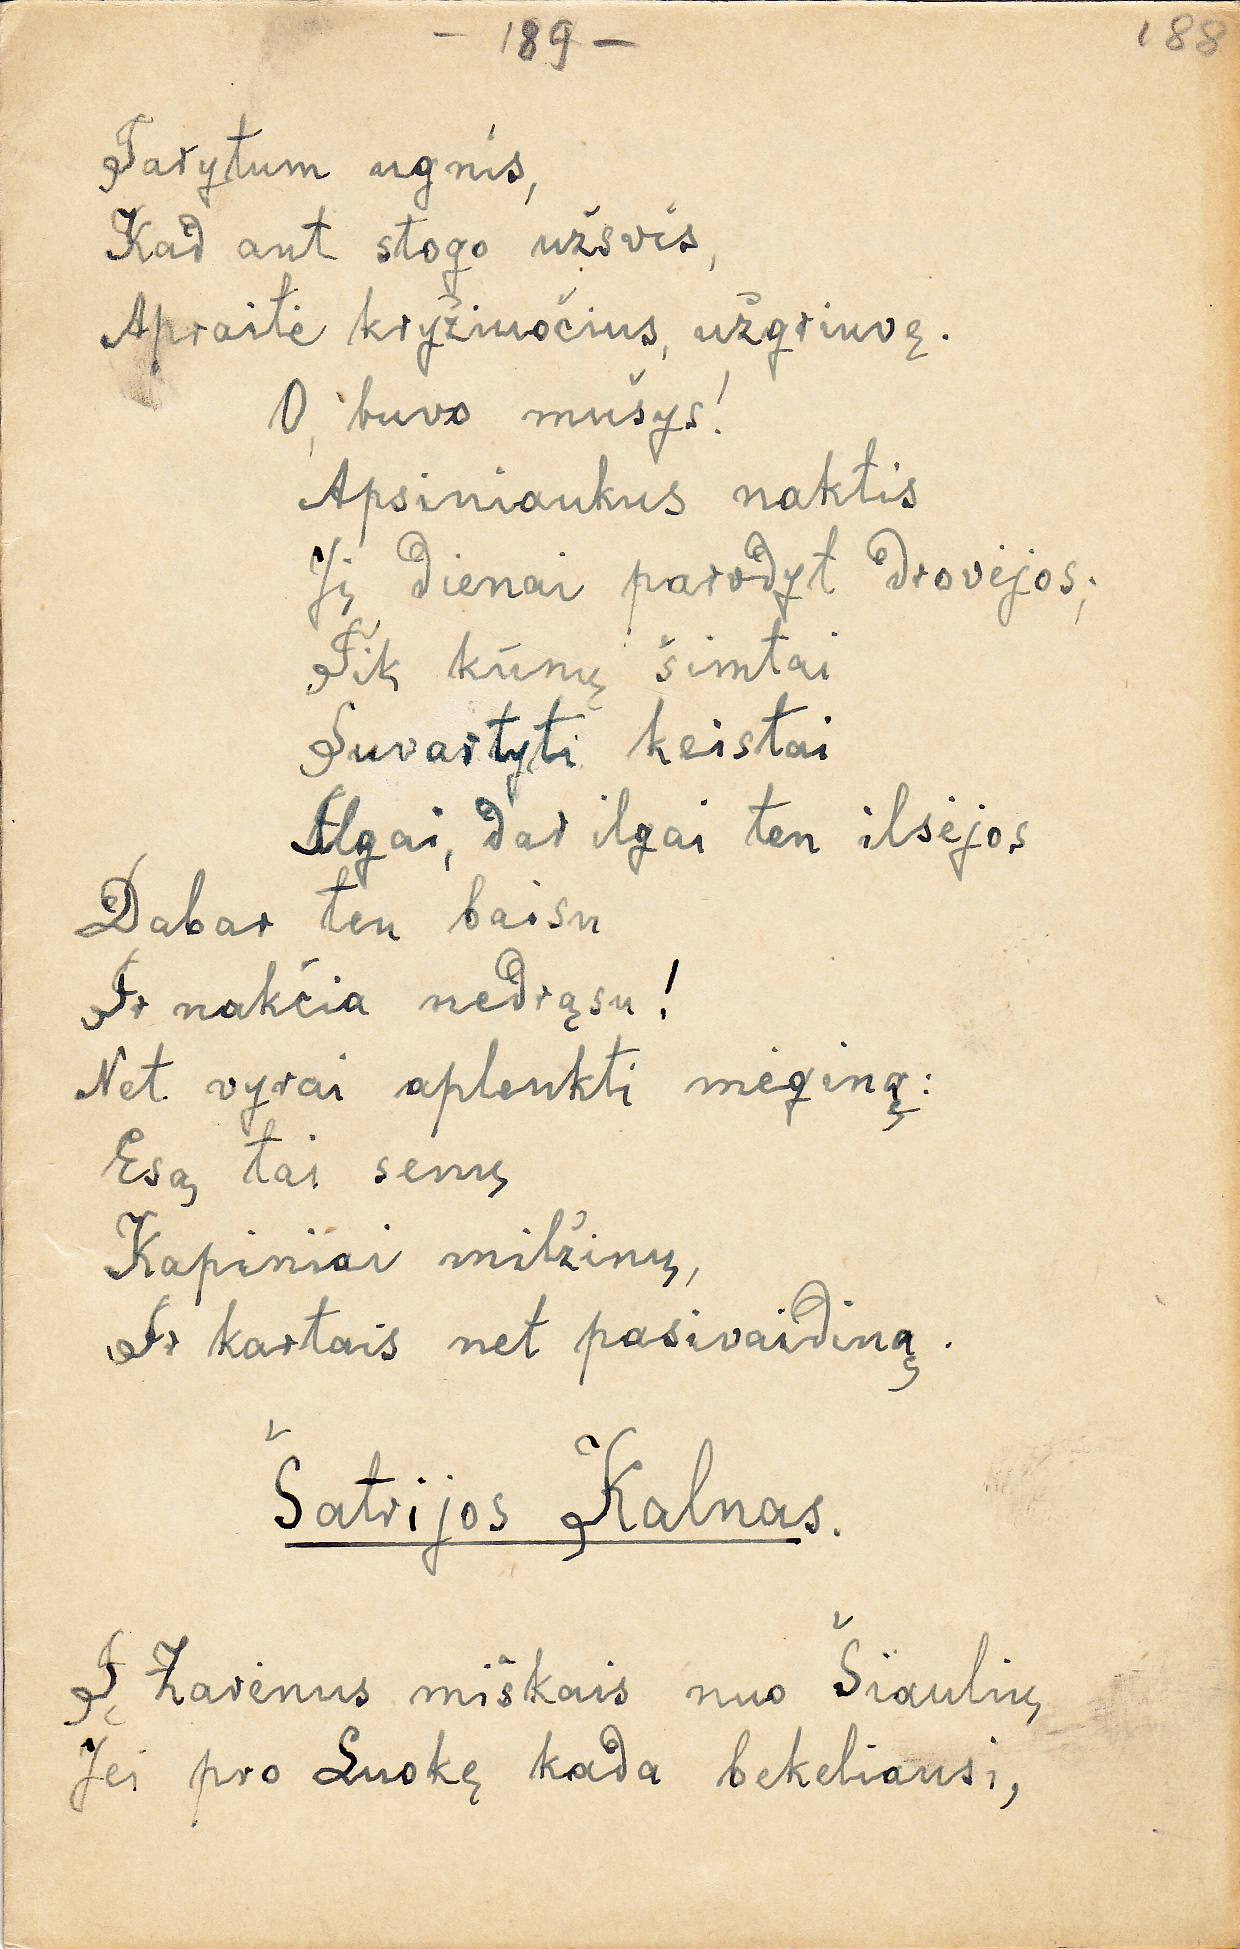 – 189 –
188
Tarytum ugnis,
Kad ant stogo užšvis,
Apraitė kryžiuočius, užgriuvę.
O, buvo mušys!
Apsiniaukus naktis
Jį dienai parodyt drovėjos;
Tik kūnų šimtai
Suvartyti keistai
Ilgai, dar ilgai ten ilsėjos
Dabar ten baisu
Ir nakčia nedrąsu!
Net vyrai aplenkti mėginą:
Esą tai senų
Kapiniai milžinų,
Ir kartais net pasivaidiną.
Šatrijos Kalnas.
Į Žarėnus miškais nuo Šiaulių
Jei pro Luokę kada bekeliausi,